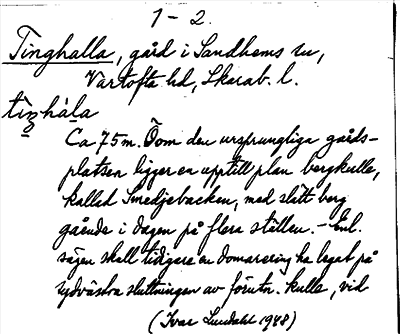 1-2.
Tinghalla, gård i Sandhems sn,
Vartofta hd, Skarab. l.
tìŋhàla
Ca 75 m. Ö om den ursprungliga gårds-
platsen ligger en upptill plan bergkulle,
kallad Smedjebacken, med slätt berg
gående i dagen på flera ställen. - Enl.
sägen skall tidigare en domarering ha legat på
sydvästra sluttningen av förutn. kulle, vid
(Ivar Lundahl 1948)